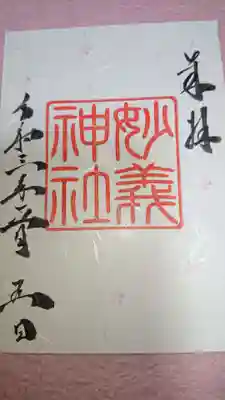 奉拝
妙義
神社
令和三年一月五日